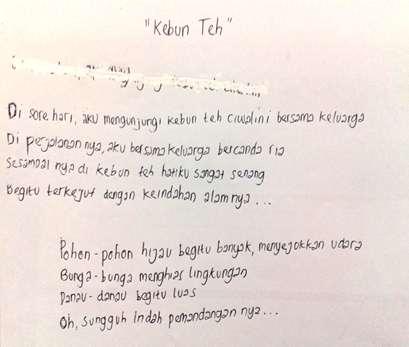 "Kebun Teh"
Di sore hari, aku mengunjungi kebun teh ciwalini bersama keluarga
Di perjalanan nya, aku bersama keluarga bercanda ria
Sesampai nya di kebun teh hatiku sangat senang
Begitu terkejut dengan keindahan alam nya ...
Pohon - pohon hijau begitu banyak, menyejokkan udara
Bunga - bunga menghias lingkungan
Danau - danau begitu luas
Oh, sungguh indah pemandangan nya ...